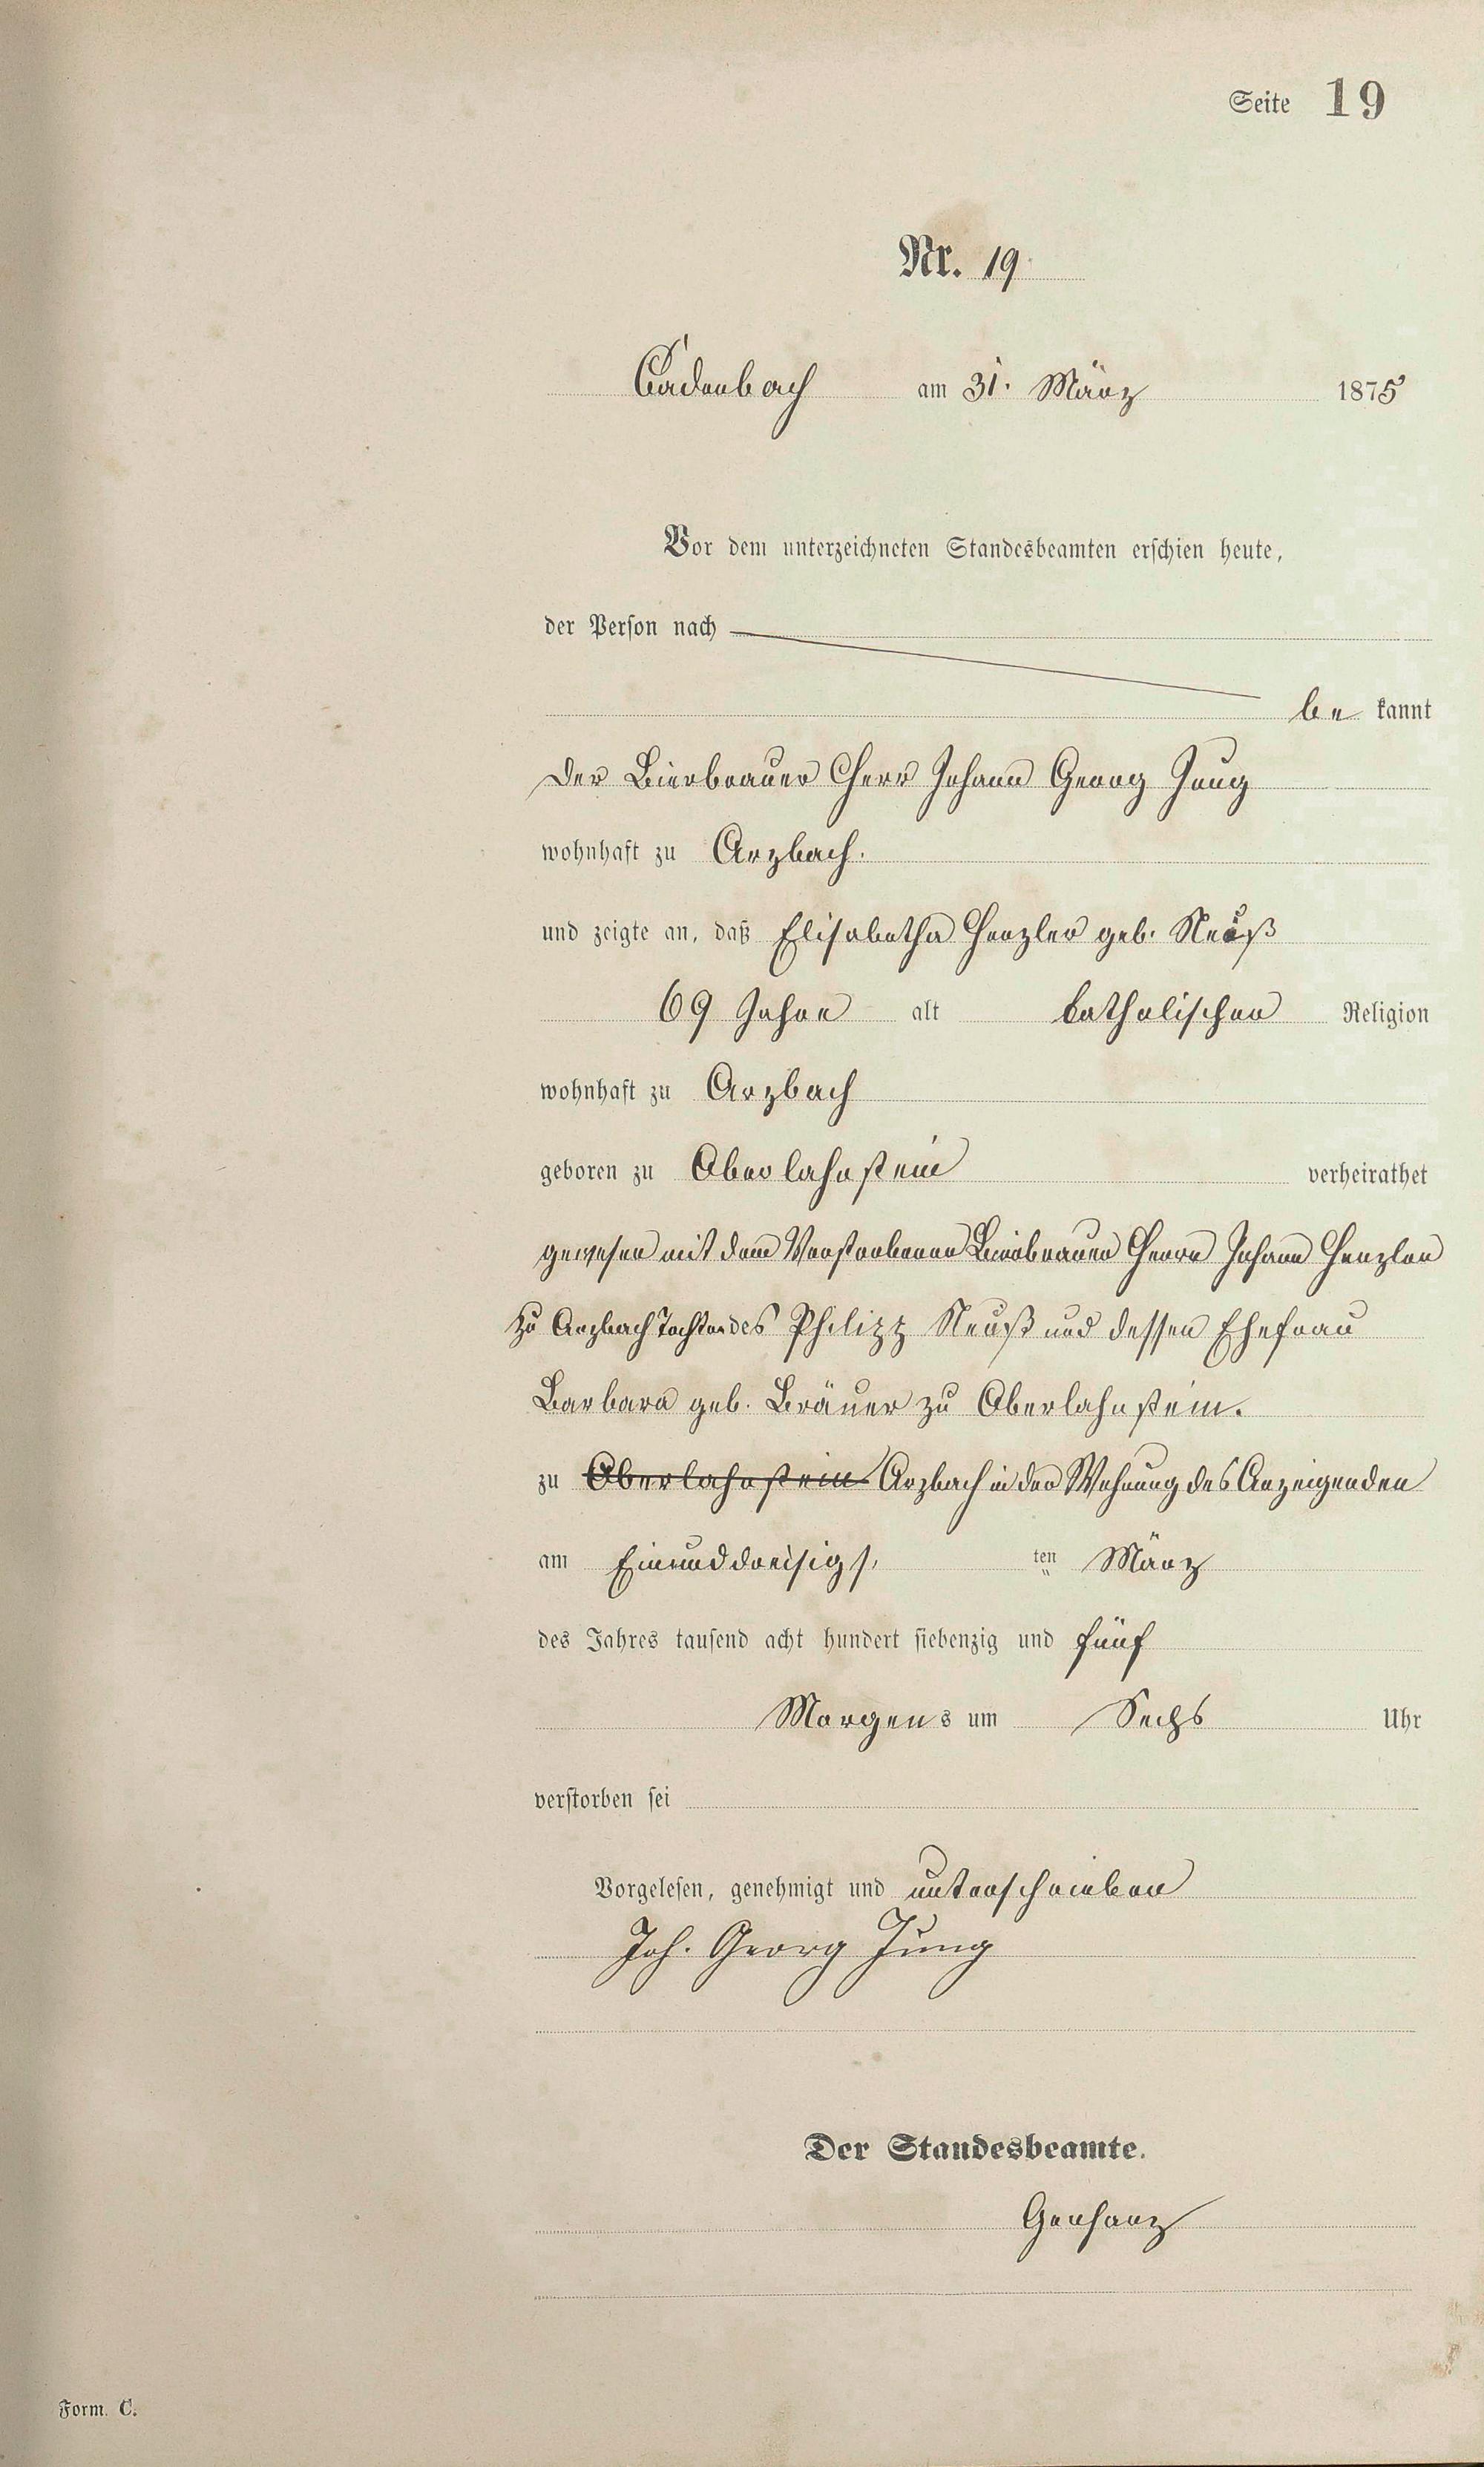 Seite 19
Nr. 19
Cadenbach am 31. März 1875
Vor dem unterzeichneten Standesbeamten erschien heute,
der Person nach
be kannt
der Bierbrauer Herr Johann Georg Jung
wohnhaft zu Arzbach.
und zeigte an, daß Elisabetha Henzler geb. Neuß
69 Jahre alt katholischen Religion
wohnhaft zu Arzbach
geboren zu Oberlahnstein verheirathet
gewesen mit dem Verstorbenen Bierbrauer Herrn Johann Henzler
zu Arzbach Tochter des Philipp Neuß und dessen Ehefrau
Barbara geb. Bräuer zu Oberlahnstein.
zu Oberlahnstein Arzbach in der Wohnung des Anzeigenden
am Einunddreisigs. ten März
des Jahres tausend acht hundert siebenzig und fünf
Morgens um Sechs Uhr
verstorben sei
Vorgelesen, genehmigt und unterschrieben
Joh. Georg Jung
Der Standesbeamte.
Form. C.